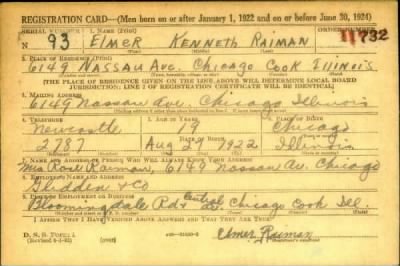 REGISTRATION CARD—(Men born on or after January 1, 1922 and on or before June 30, 1924)
SERIAL NUMBER 1. NAME (Print) ORDER NUMBER
N 93 ELMER KENNETH RAIMAN 11732
2. PLACE OF RESIDENCE (Print)
6149 NASSAU AVE. CHICAGO COOK ILLINOIS
[THE PLACE OF RESIDENCE GIVEN ON THE LINE ABOVE WILL DETERMINE LOCAL BOARD
JURISDICTION; LINE 2 OF REGISTRATION CERTIFICATE WILL BE IDENTICAL]
3. MAILING ADDRESS
6149 Nassau Ave. Chicago Illinois
4. TELEPHONE 5. AGE IN YEARS 6. PLACE OF BIRTH
Newcastle 19 Chicago
DATE OF BIRTH
2787 Aug 29 1922 Illinois
7. NAME AND ADDRESS OF PERSON WHO WILL ALWAYS KNOW YOUR ADDRESS
Mrs Rose Raiman, 6149 Nassau Av. Chicago
8. EMPLOYER'S NAME AND ADDRESS
Glidden & Co
9. PLACE OF EMPLOYMENT OR BUSINESS
Bloomingdale Rd & Central Av. Chicago Cook Ill.
I AFFIRM THAT I HAVE VERIFIED ABOVE ANSWERS AND THAT THEY ARE TRUE.
D. S. S. Form 1
Elmer Raiman